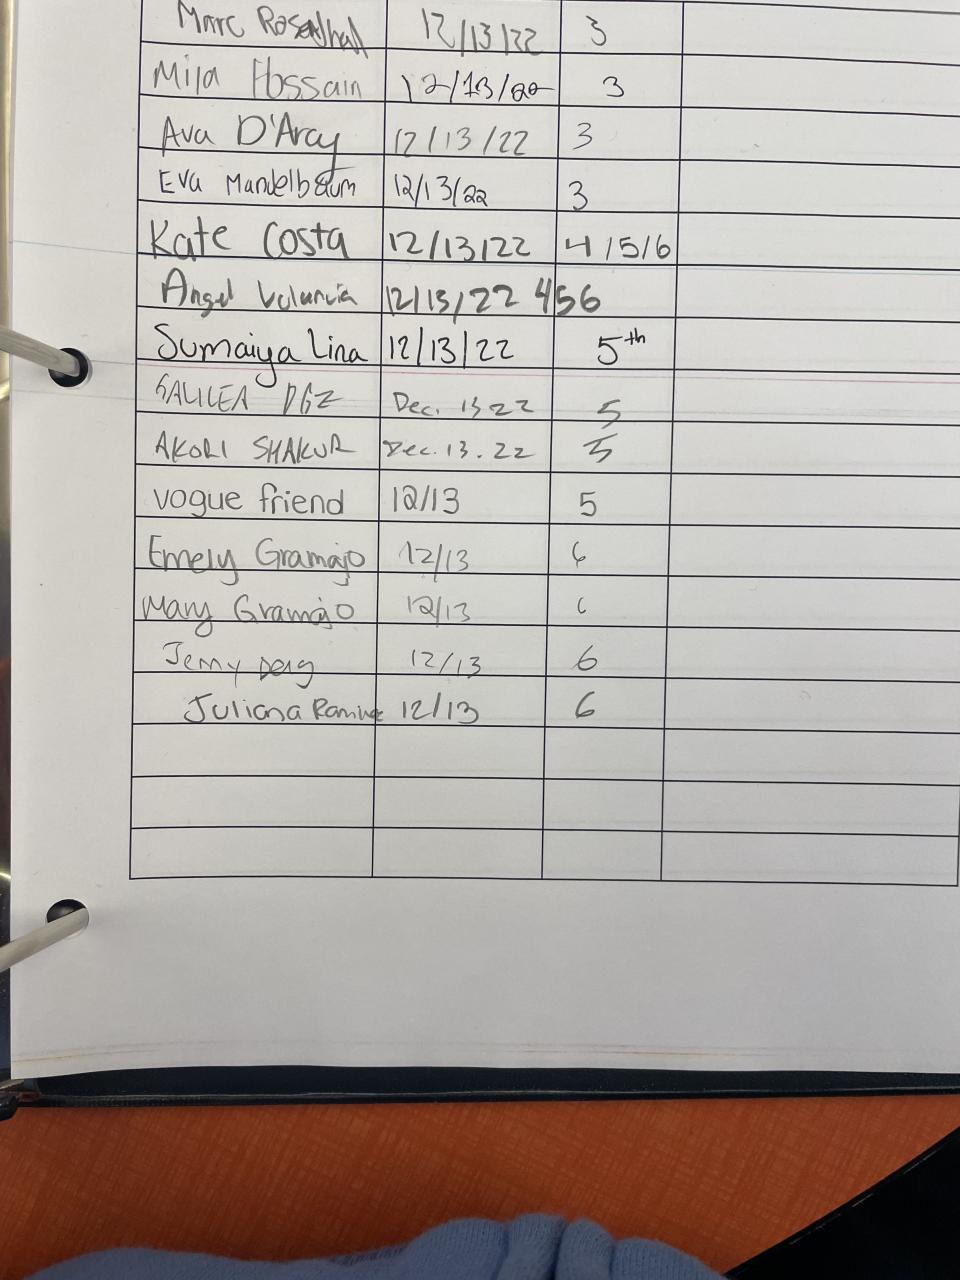 Marc Rosenthal 12/13/22 3
Mila Hossain 12/13/22 3
Ava D'Arcy 12/13/22 3
Eva Mandelbaum 12/13/22 3
Kate Costa 12/13/22 4/5/6
Angel Valencia 12/13/22 456
Sumaiya Lina 12/13/22 5th
GALILEA DGZ Dec. 13 22 5
AKORI SHAKUR Dec. 13. 22 5
vogue friend 12/13 5
Emely Gramajo 12/13 6
Mary Gramajo 12/13 6
Jenny 12/13 6
Juliana 12/13 6